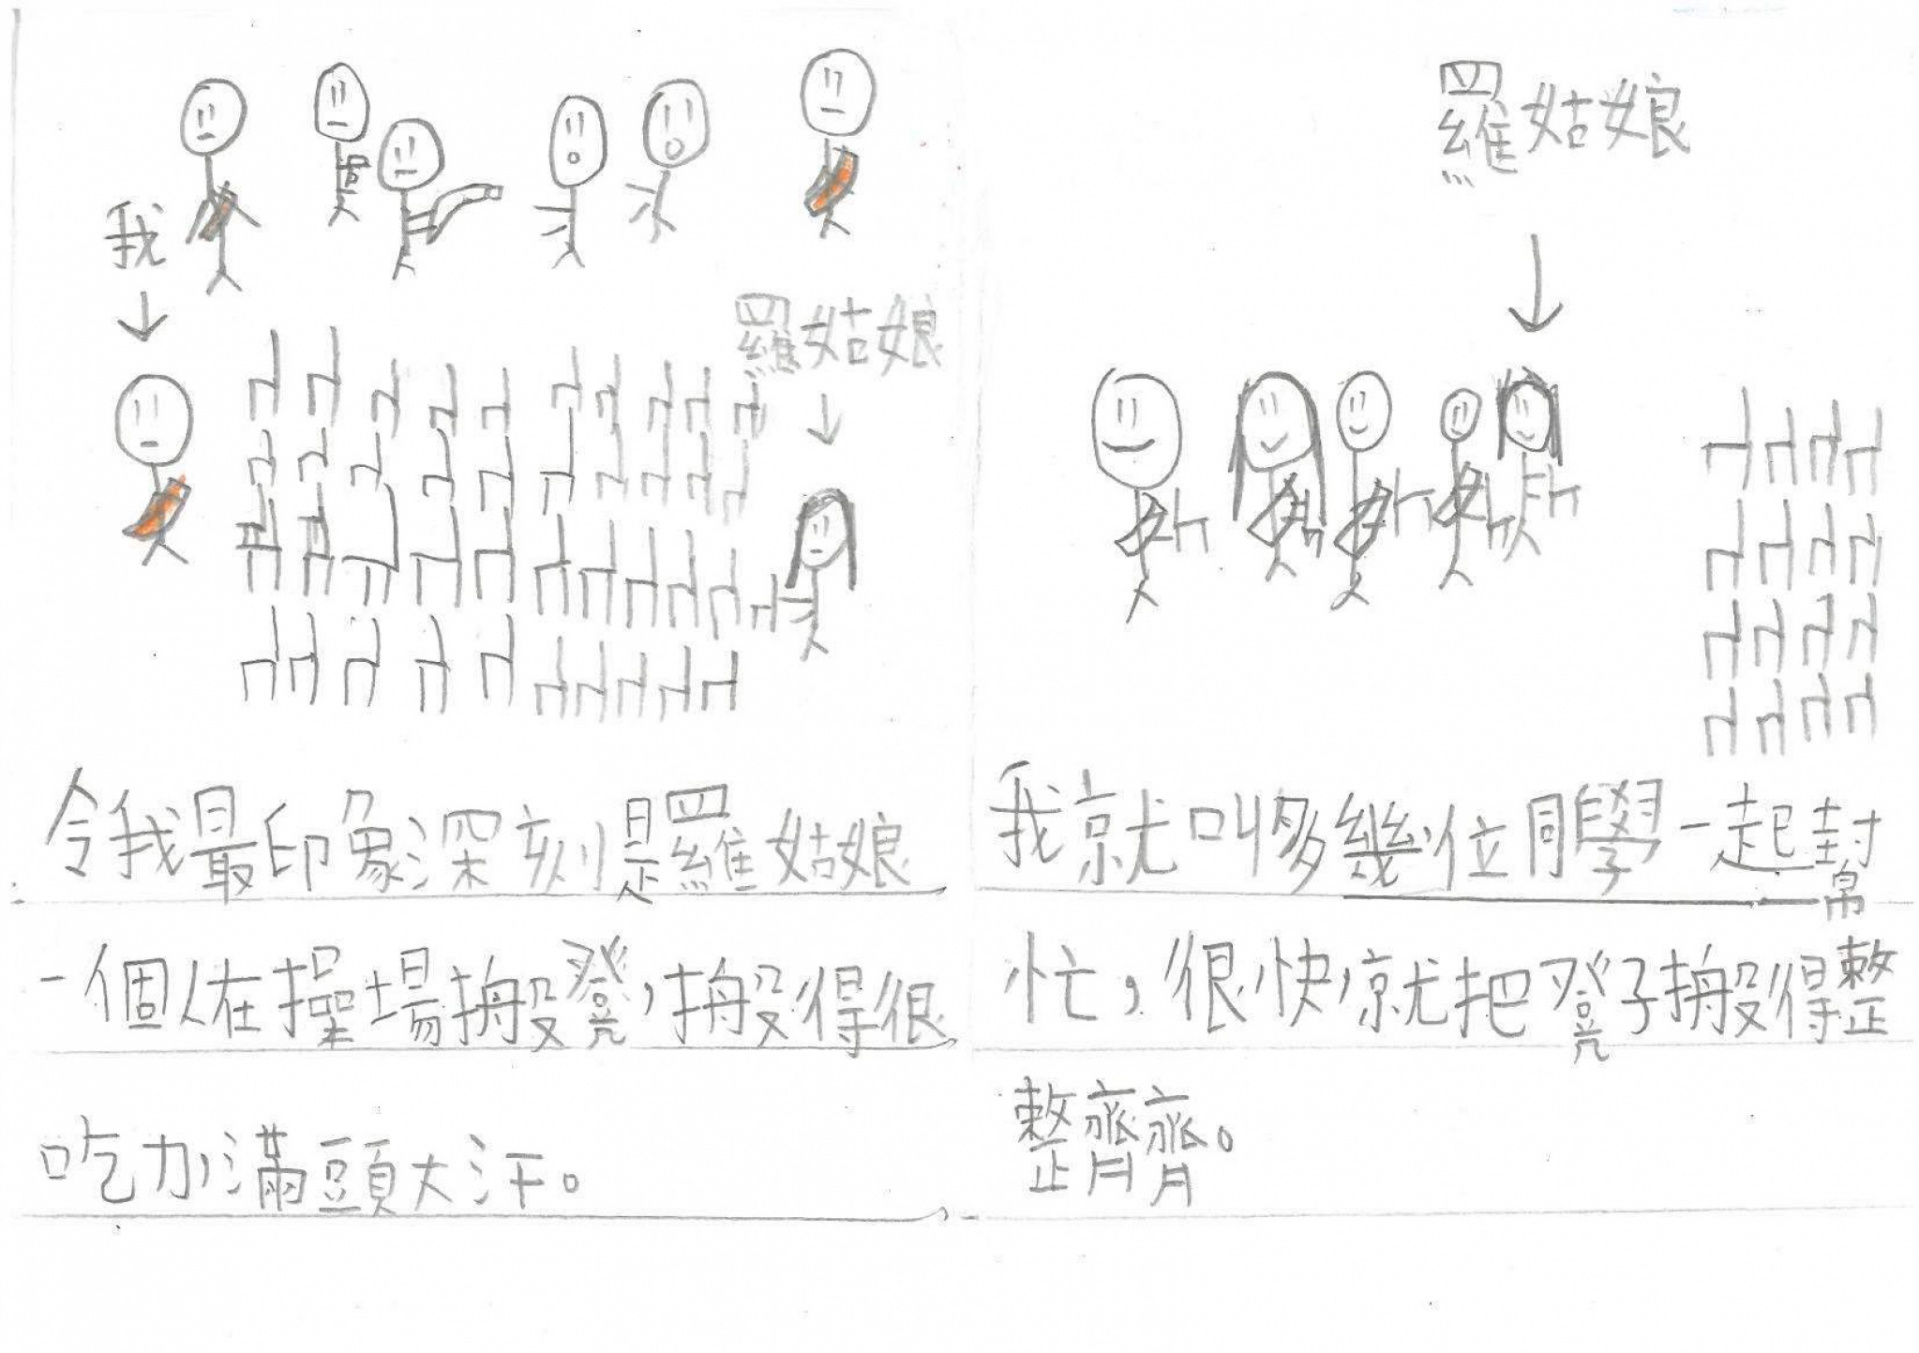 我
羅姑娘
令我最印象深刻是羅姑娘
一個人在操場搬凳,搬得很
吃力,滿頭大汗。
羅姑娘
我就叫多幾位同學一起幫
忙,很快就把凳子搬得整
整齊齊。